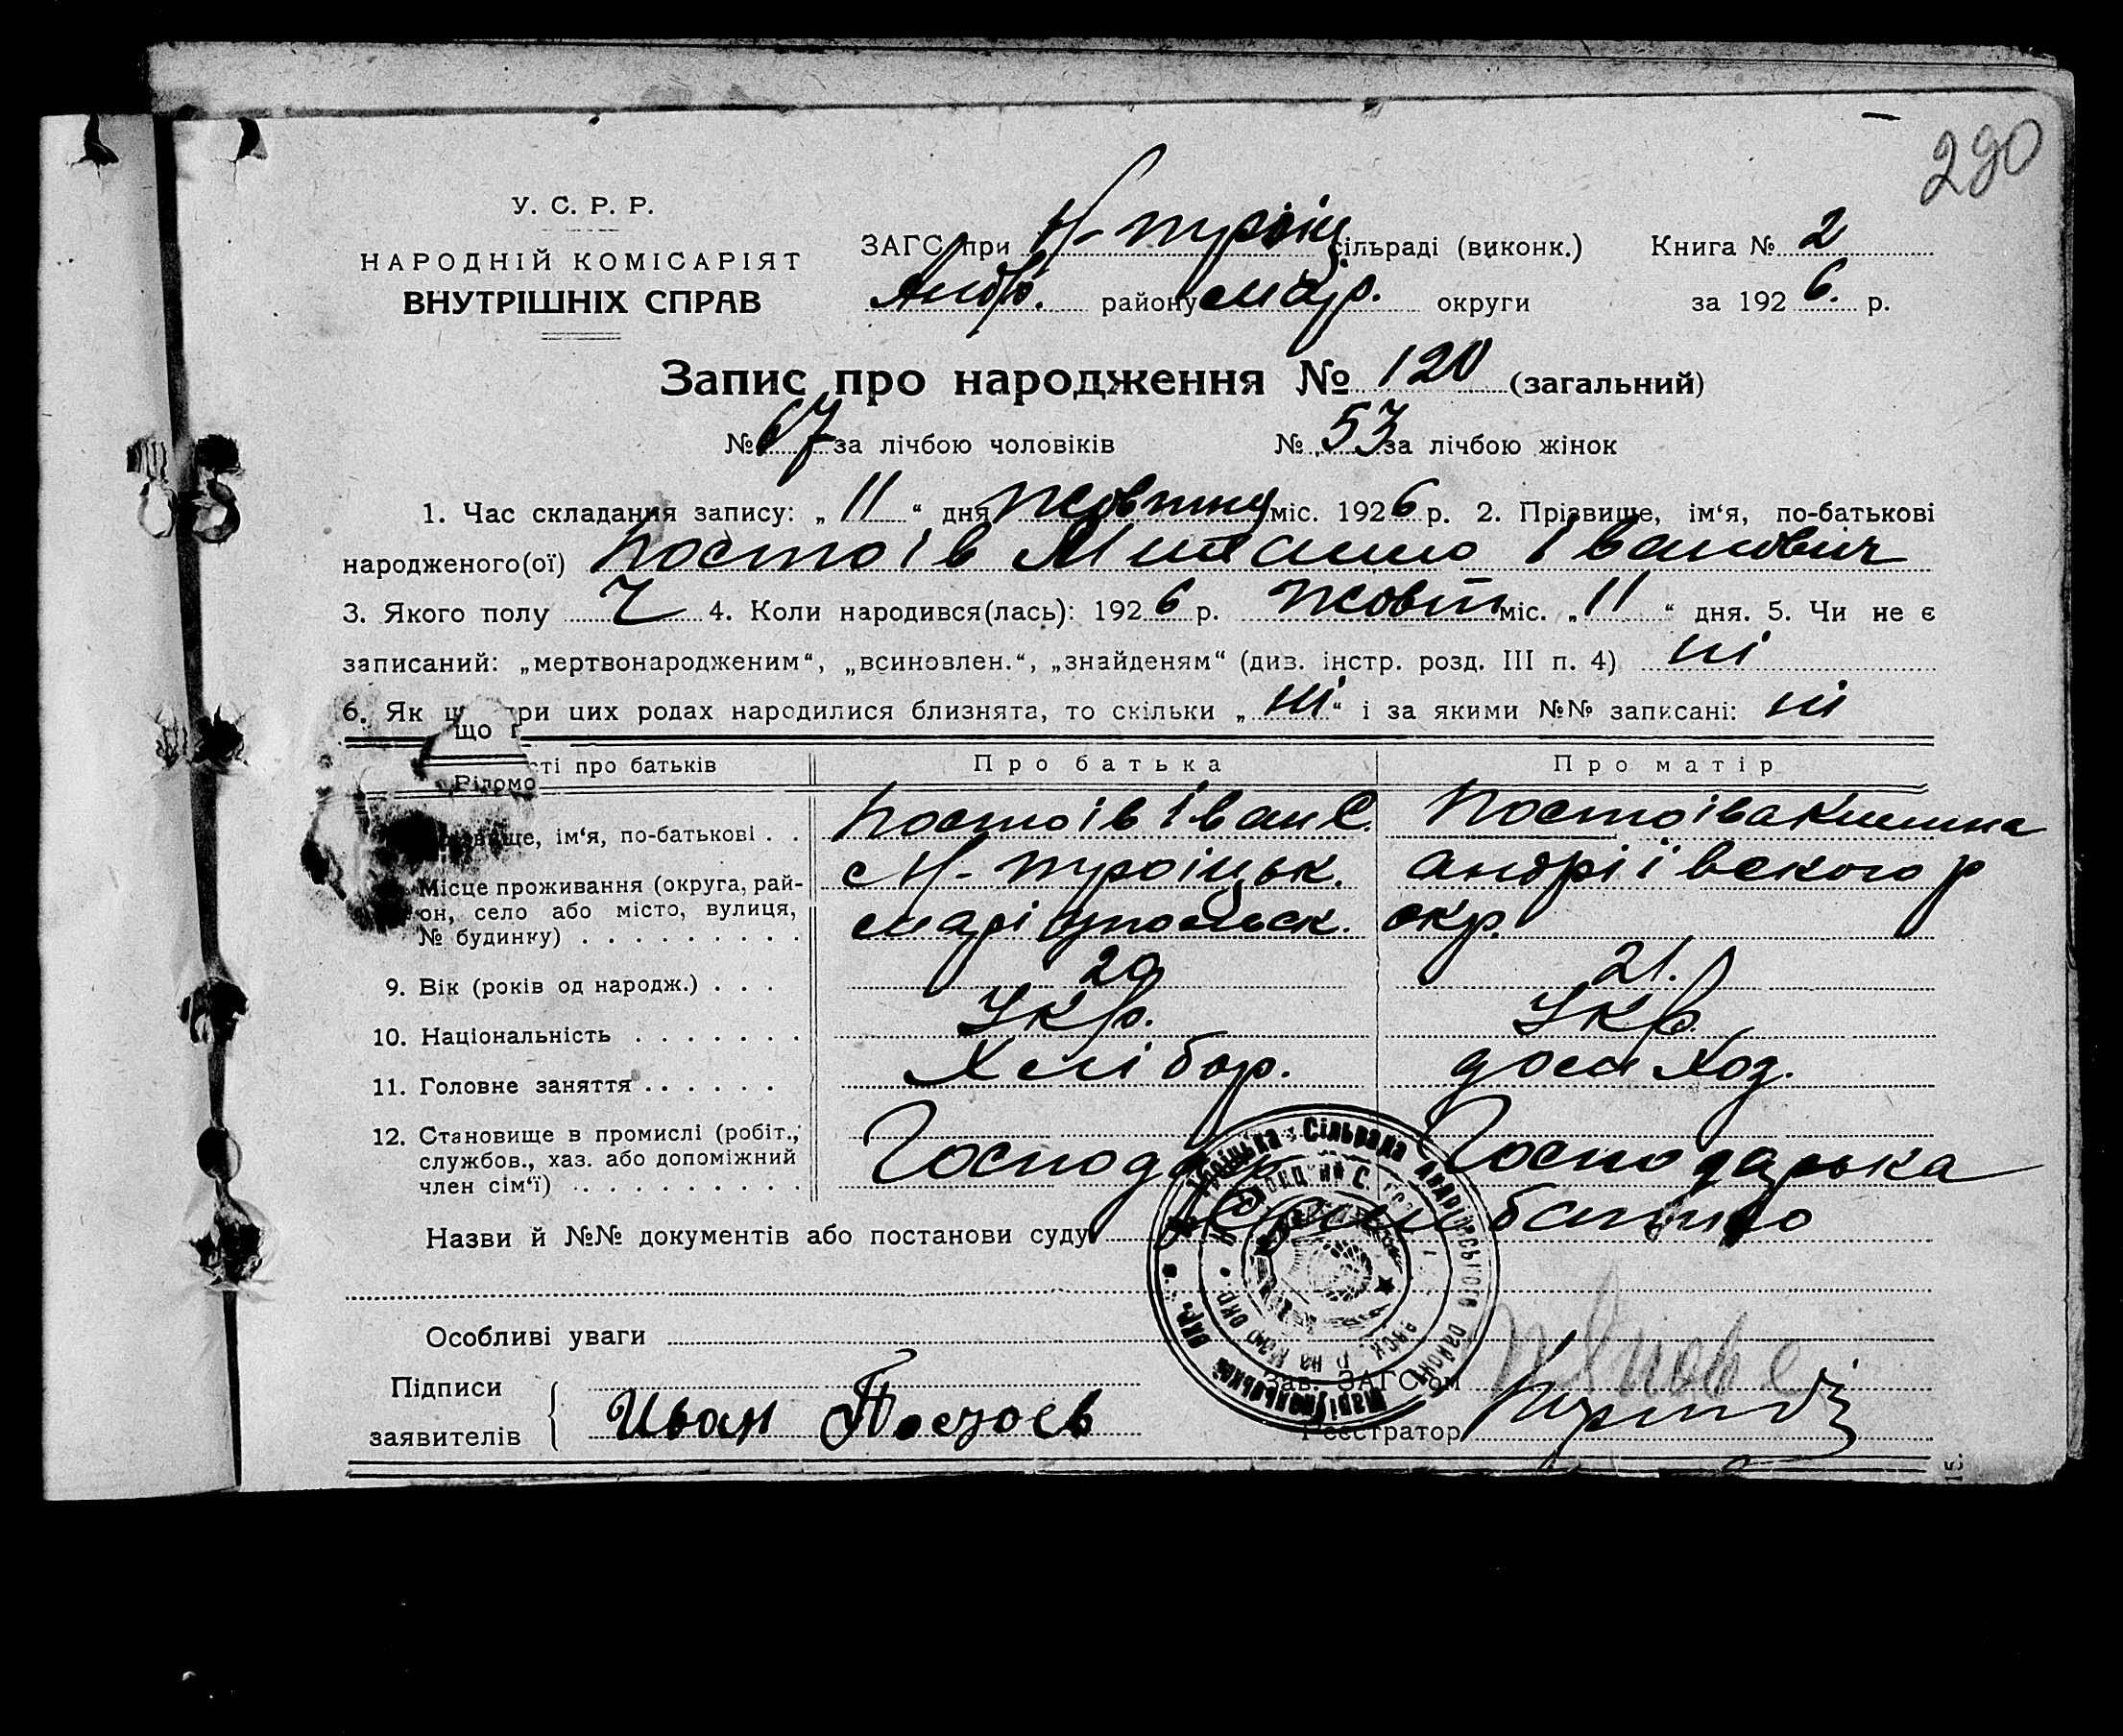 290
У. С. Р. Р.
НАРОДНІЙ КОМІСАРІЯТ
ВНУТРІШНІХ СПРАВ
ЗАГС при Н-троіц сільраді (виконк.) Книга № 2
Андр. району Мар. округи за 1926. р.
Запис про народження № 120 (загальний)
№ 67 за лічбою чоловіків № 53 за лічбою жінок
1. Час складання запису: „ 11 “ дня Жовтня міс. 1926 р. 2. Прізвище, ім‘я, по-батькові
народженого(ої) Постоів Іванович
3. Якого полу Ч 4. Коли народився(лась): 1926 р. Жовт міс. „ 11 “ дня. 5. Чи не є
записаний: „мертвонародженим“, „всиновлен.“, „знайденям“ (див. інстр. розд. III п. 4) ні
6. Як що при цих родах народилися близнята, то скільки „ ні “ і за якими №№ записані: ні
Відомості про батьків Про батька Про матір
ім‘я, по-батькові . . Постоів Іван С. Постоіва
Місце проживання (округа, рай-
он, село або місто, вулиця,
№ будинку) . . . . . . . . .
Н-троіцьк. Андріівского р
Маріупольск. окр.
9. Вік (років од народж.) . . . 21.
10. Національність . . . . . . . Укр. Укр.
11. Головне заняття . . . . . . Хлібор. дом хоз.
12. Становище в промислі (робіт.,
службов., хаз. або допоміжний
член сім‘ї) . . . . . . . . . .
Господар Господарька
Назви й №№ документів або постанови суду Сам батько
Особливі уваги
Підписи
заявителів Иван Постоев
Зав. ЗАГС‘ом
Реєстратор
15.